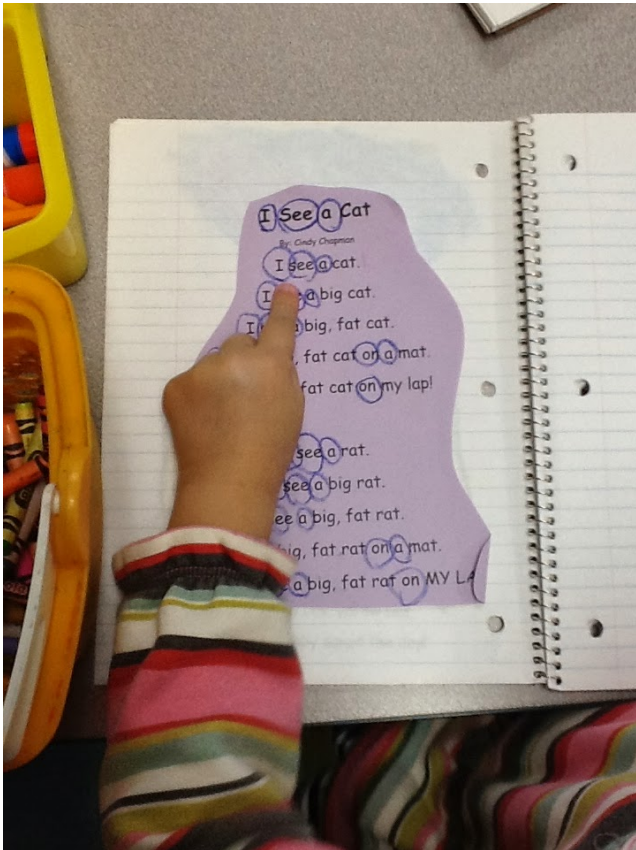 I See a Cat
By: Cindy Chapman
I see a cat.
I a big cat.
I big, fat cat.
, fat cat on a mat.
fat cat on my lap!
see a rat.
see a big rat.
see a big, fat rat.
big, fat rat on a mat.
a big, fat rat on MY